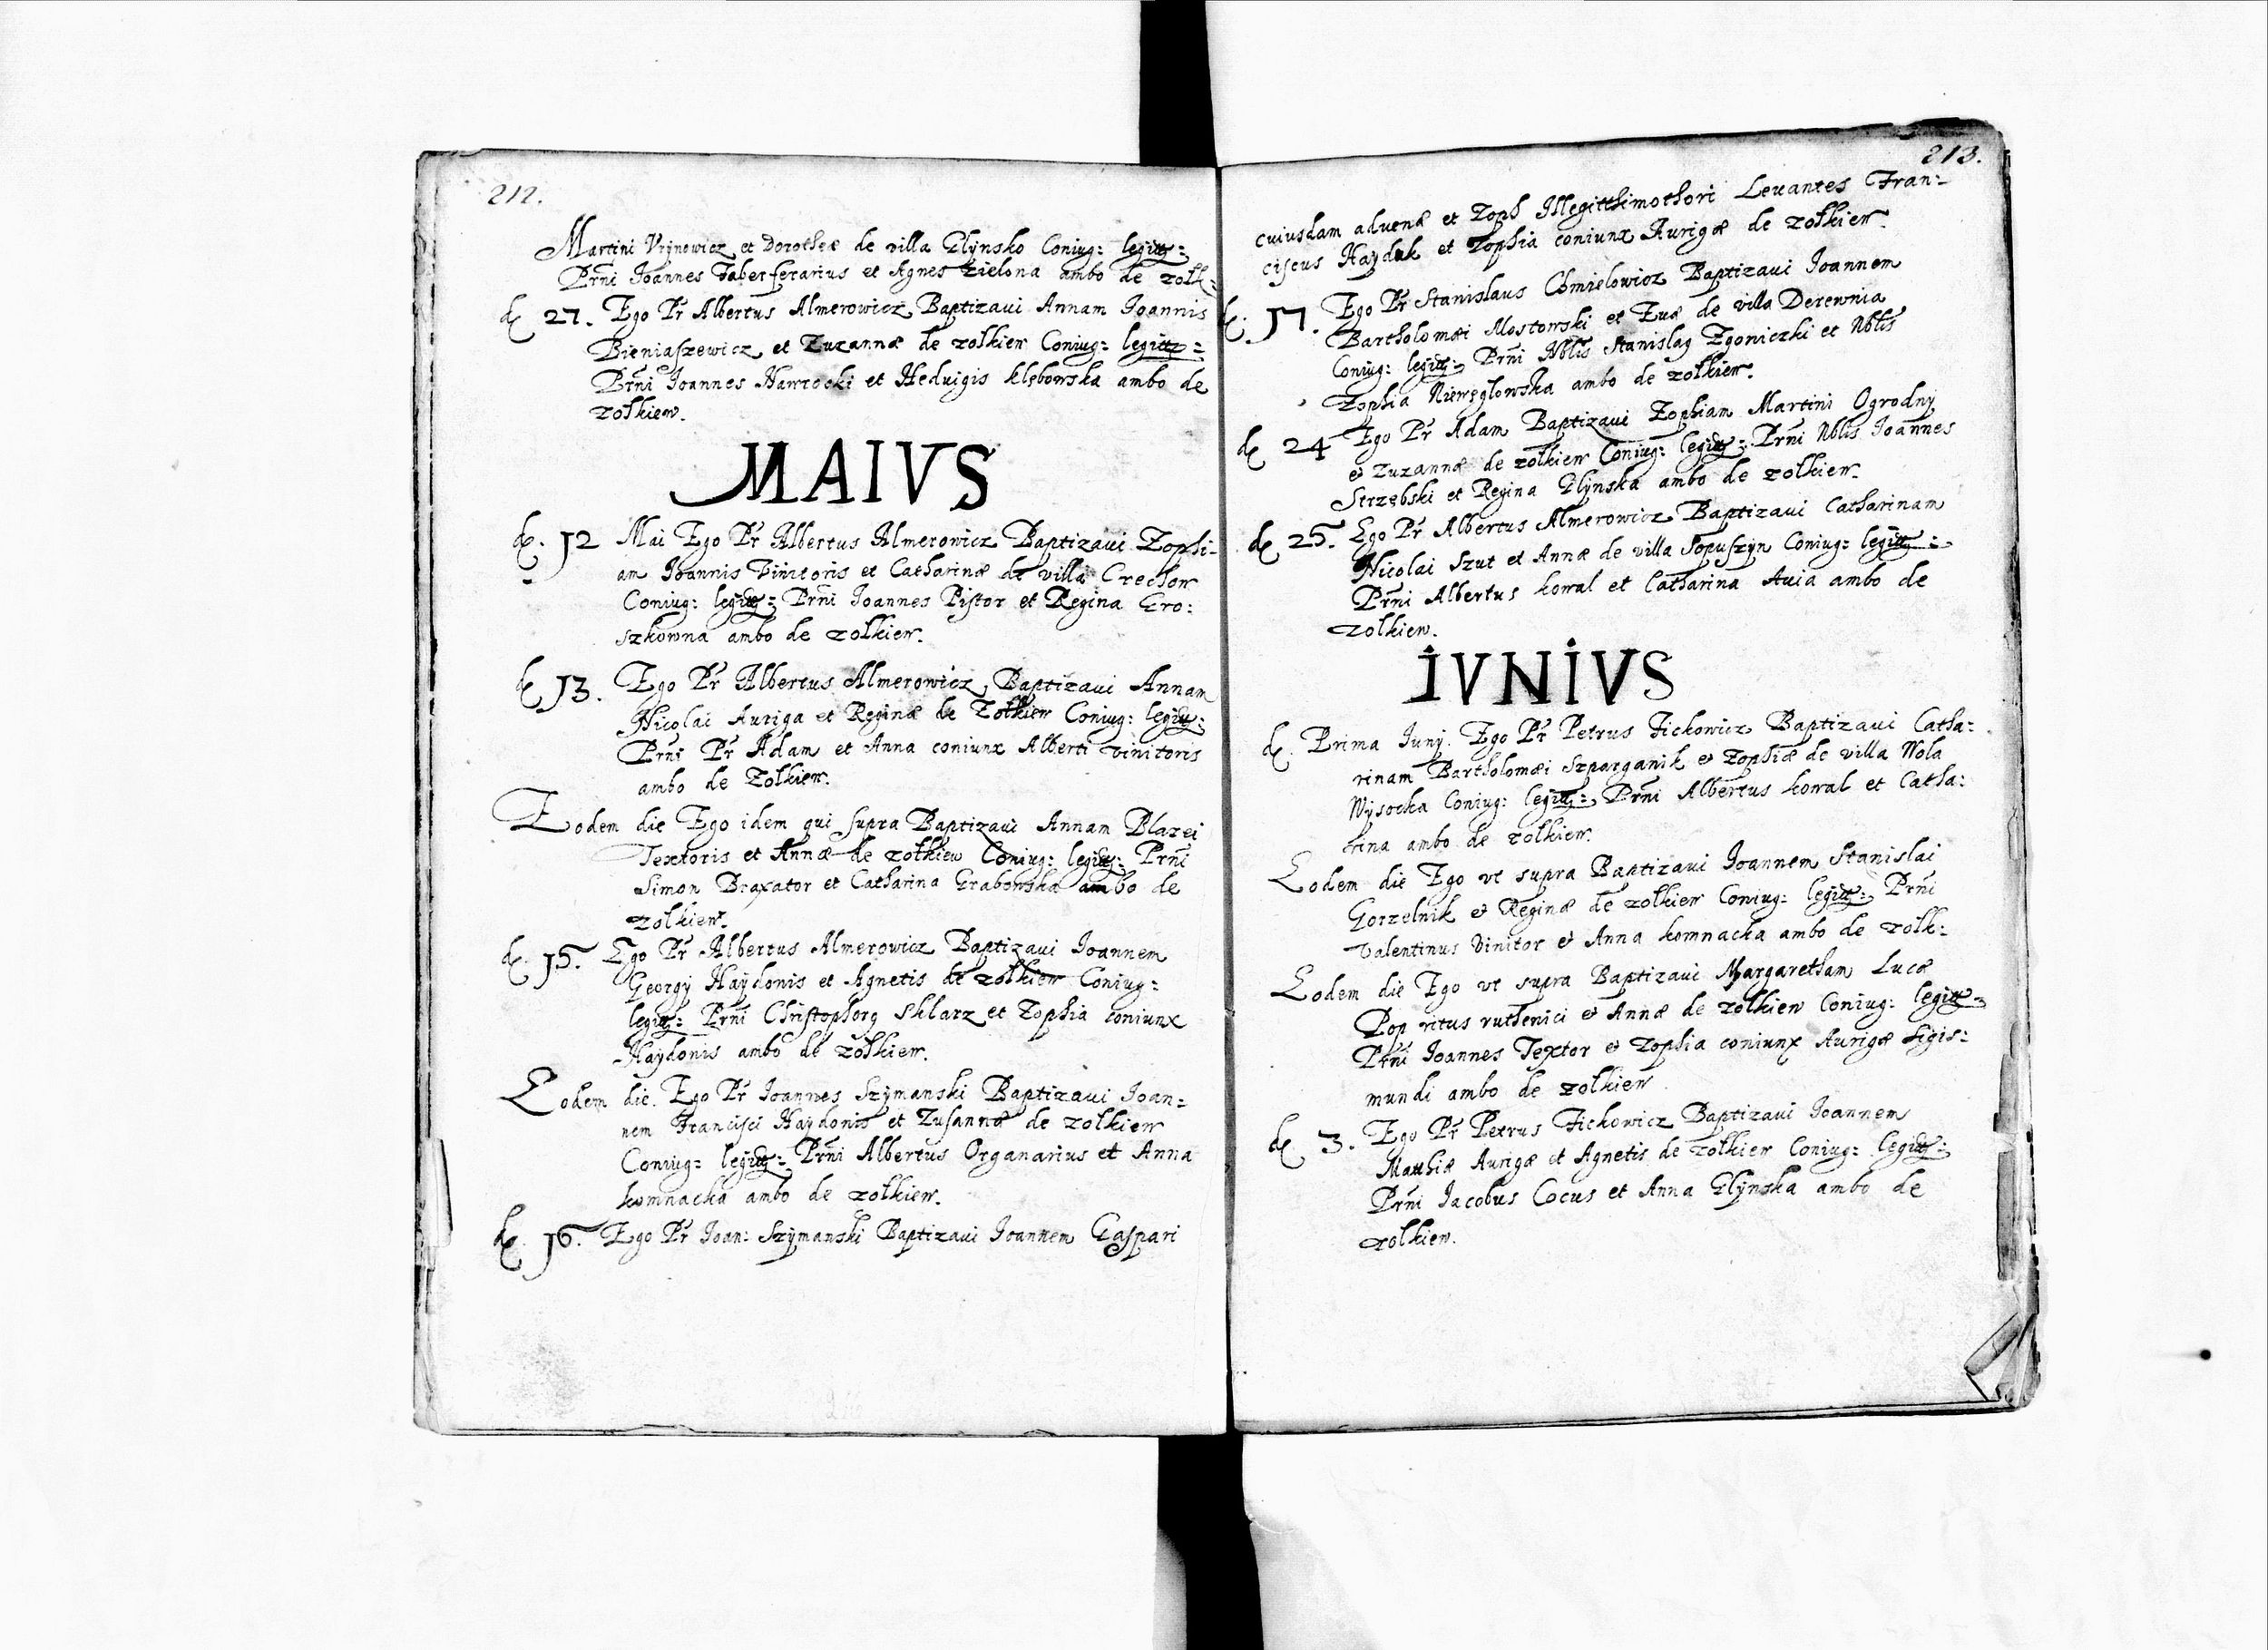 212.
Martini Vrÿnowicz et Dorotheæ de villa Glÿnsko Coniug: legitt:
Prñi Joannes Faber ferarius et Agnes Zielona ambo de zolk:
d. 27. Ego Pr Albertus Almerowicz Baptizaui Annam Joannis
Bieniaszewicz et Zuzannæ de zolkiew Coniug: legitt:
Prñi Joannes Nawrocki et Heduigis klębowska ambo de
zolkiew.
MAIVS
d. 12 Mai Ego Pr Albertus Almerowicz Baptizaui Zophi-
am Joannis Vinitoris et Catharinæ de villa Crechow
Coniug: legitt: Prñi Joannes Pistor et Regina Gro:
szkowna ambo de zolkiew.
d. 13. Ego Pr Albertus Almerowicz Baptizaui Annam
Nicolai Auriga et Reginæ de Zolkiew Coniug: legitt:
Prñi Pr Adam et Anna coniunx Alberti vinitoris
ambo de Zolkiew.
Eodem die Ego idem qui supra Baptizaui Annam Blazei
Textoris et Annæ de zolkiew Coniug: legitt: Prñi
Simon Braxator et Catharina Grabowska ambo de
zolkiew.
d. 15. Ego Pr Albertus Almerowicz Baptizaui Joannem
Georgÿ Haÿdonis et Agnetis de zolkiew Coniug:
legitt: Prñi Christophorg Sklarz et Zophia coniunx
Haÿdonis ambo de zolkiew.
Eodem die. Ego Pr Joannes Szÿmanski Baptizaui Joan=
nem Francisci Haÿdonis et Zusannæ de zolkiew
Coniug: legitt: Prñi Albertus Organarius et Anna
komnacka ambo de zolkiew.
d. 16. Ego Pr Joan: Szÿmanski Baptizaui Joannem Gaspari
213.
cuiusdam aduenæ et Zoph Illegitthimothori Leuantes Fran:
ciscus Haÿduk et Zophia coniunx Aurigæ de zolkiew.
d. 17. Ego Pr Stanislaus Chmielowicz Baptizaui Joannem
Bartholomæi Mostowski et Euæ de villa Derewnia
Coniug: legitt: Prñi Nblis Stanislag Zgoniczki et Nblis
Zophia Nieweglowska ambo de zolkiew.
d. 24 Ego Pr Adam Baptizaui Zophiam Martini Ogrodnÿ
et Zuzannæ de zolkiew Coniug: legitt: Prñi Nblis Joannes
Strzębski et Regina Glÿnska ambo de zolkiew.
d. 25. Ego Pr Albertus Almerowicz Baptizaui Catharinam
Nicolai Szut et Annæ de villa Sopuszÿn Coniug: legitt:
Prñi Albertus kowal et Catharina Auia ambo de
zolkiew.
IVNIVS
d. Prima Junÿ. Ego Pr Petrus Fickowicz Baptizaui Catha:
rinam Bartholomæi Szparganik et Zophiæ de villa Wola
Wÿsocka Coniug: legitt: Prñi Albertus kowal et Catha:
rina ambo de zolkiew.
Eodem die Ego vt supra Baptizaui Joannem Stanislai
Gorzelnik et Reginæ de zolkiew Coniug: legitt: Prñi
Valentinus Vinitor et Anna komnacka ambo de zolk:
Eodem die Ego vt supra Baptizaui Margaretham Lucæ
Pop ritus ruthenici et Annæ de zolkiew Coniug: legitt:
Prñi Joannes Textor et Zophia coniunx Aurigæ Sigis:
mundi ambo de zolkiew
d. 3. Ego Pr Petrus Fickowicz Baptizaui Joannem
Matthiæ Aurigæ et Agnetis de zolkiew Coniug: legitt:
Prñi Jacobus Cocus et Anna Glÿnska ambo de
zolkiew.